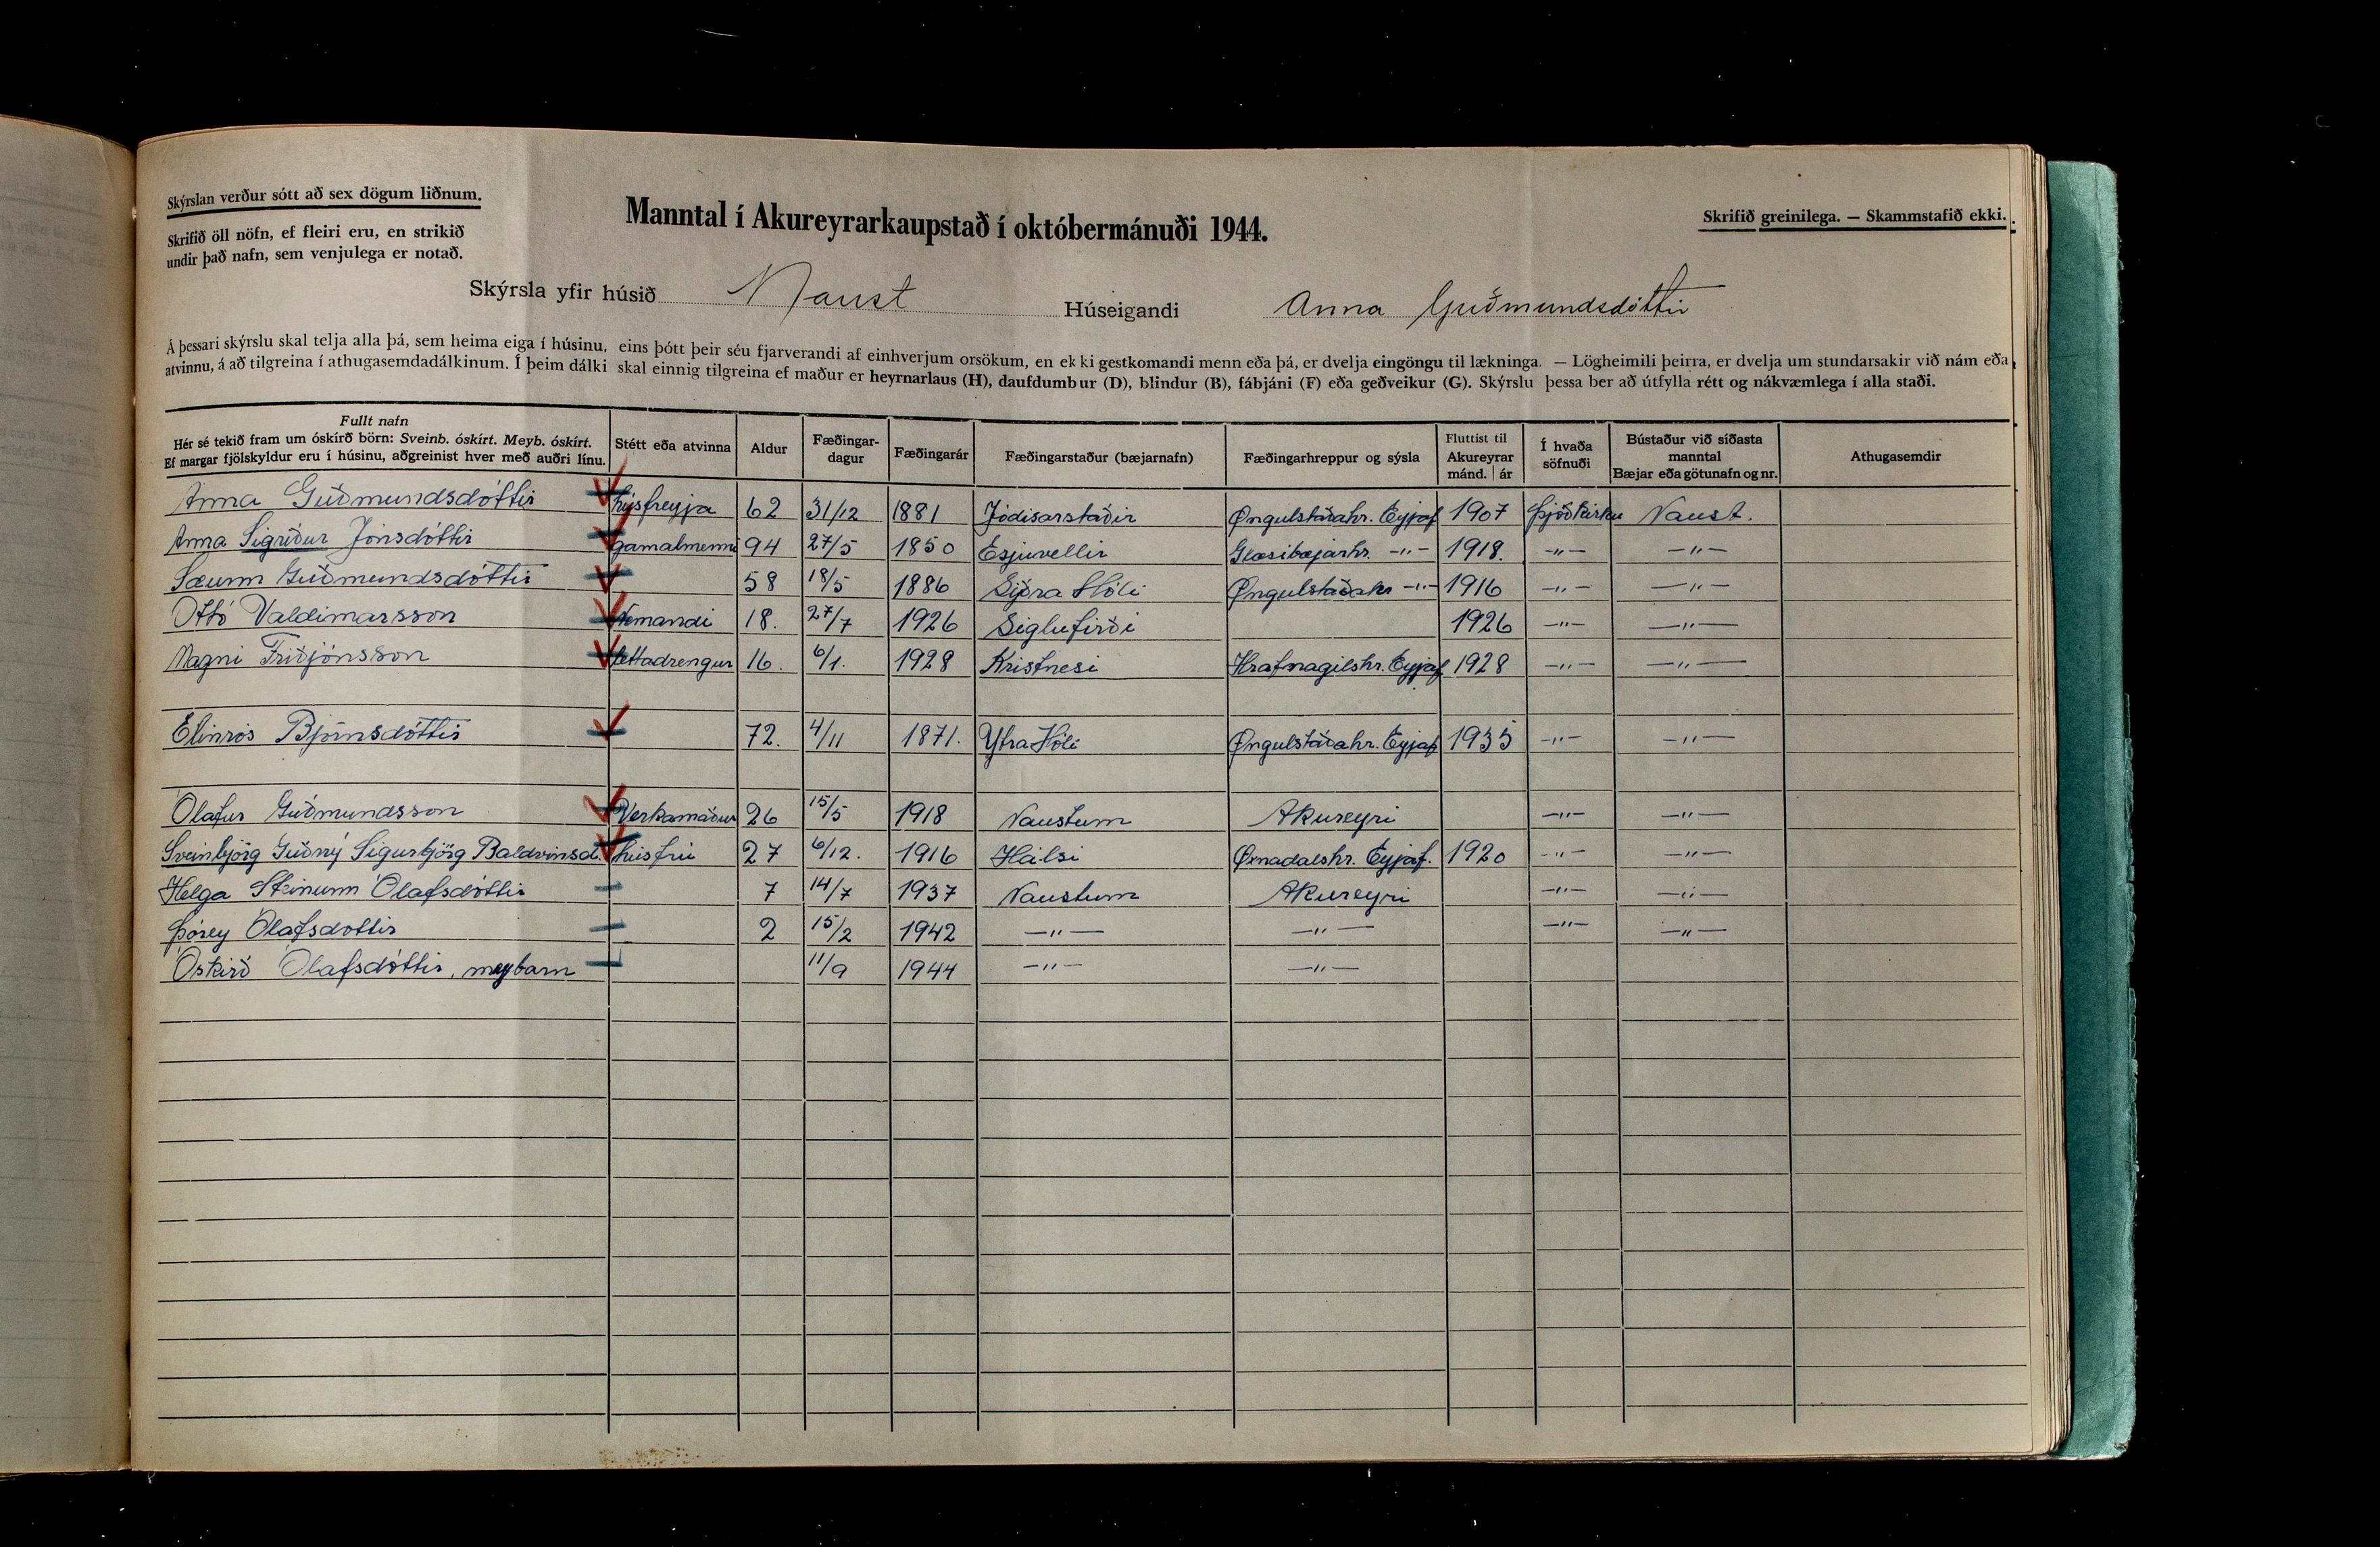 Skýrslan verður sótt að sex dögum liðnum.
Skrifið öll nöfn, ef fleiri eru, en strikið
undir það nafn, sem venjulega er notað.
Manntal í Akureyrarkaupstað í októbermánuði 1944.
Skrifið greinilega. — Skammstafið ekki.
Skýrsla yfir húsið Naust Húseigandi Anna Guðmundsdóttir
Á þessari skýrslu skal telja alla þá, sem heima eiga í húsinu, eins þótt þeir séu fjarverandi af einhverjum orsökum, en ekki gestkomandi menn eða þá, er dvelja eingöngu til lækninga. — Lögheimili þeirra, er dvelja um stundarsakir við nám eða
atvinnu, á að tilgreina í athugasemdadálkinum. Í þeim dálki skal einnig tilgreina ef maður er heyrnarlaus (H), daufdumbur (D), blindur (B), fábjáni (F) eða geðveikur (G). Skýrslu þessa ber að útfylla rétt og nákvæmlega í alla staði.
Fullt nafn
Hér sé tekið fram um óskírð börn: Sveinb. óskírt. Meyb. óskírt.
Ef margar fjölskyldur eru í húsinu, aðgreinist hver með auðri línu.
Stétt eða atvinna
Aldur
Fæðingar-
dagur
Fæðingarár
Fæðingarstaður (bæjarnafn)
Fæðingarhreppur og sýsla
Fluttist til
Akureyrar
mánd. | ár
Í hvaða
söfnuði
Bústaður við síðasta
manntal
Bæjar eða götunafn og nr.
Athugasemdir
Anna Guðmundsdóttir húsfreyja 62 31/12 1881 Jódisarstaðir Øngulstaðahr. Eyjaf 1907 Þjóðkirku Naust.
Anna Sigríður Jónsdóttir gamalmenni 94 27/5 1850 Esjuvellir Glæsibæjarhr. -"- 1918. -"- -"-
Sæunn Guðmundsdóttir 58 18/5 1886 Syðra Hóli Øngulstaðahr -"- 1916 -"- -"-
Ottó Valdimarsson Nemandi 18. 27/7 1926 Siglufirði 1926 -"- -"-
Magni Friðjónsson léttadrengur 16. 6/1. 1928 Kristnesi Hrafnagilshr. Eyjaf 1928 -"- -"-
Elinrós Björnsdóttir 72. 4/11 1871. Ytra Hóli Øngulstaðahr. Eyjaf 1935 -"- -"-
Ólafur Guðmundsson Verkamaður 26 15/5 1918 Naustum Akureyri -"- -"-
Sveinbjörg Guðný Sigurbjörg Baldvinsd. húsfrú 27 6/12. 1916 Hálsi Øxnadalshr. Eyjaf. 1920 -"- -"-
Helga Steinunn Ólafsdóttir 7 14/7 1937 Naustum Akureyri -"- -"-
Þórey Ólafsdottir 2 15/2 1942 -"- -"- -"- -"-
Óskírð Ólafsdóttir, meybarn 11/9 1944 -"- -"-